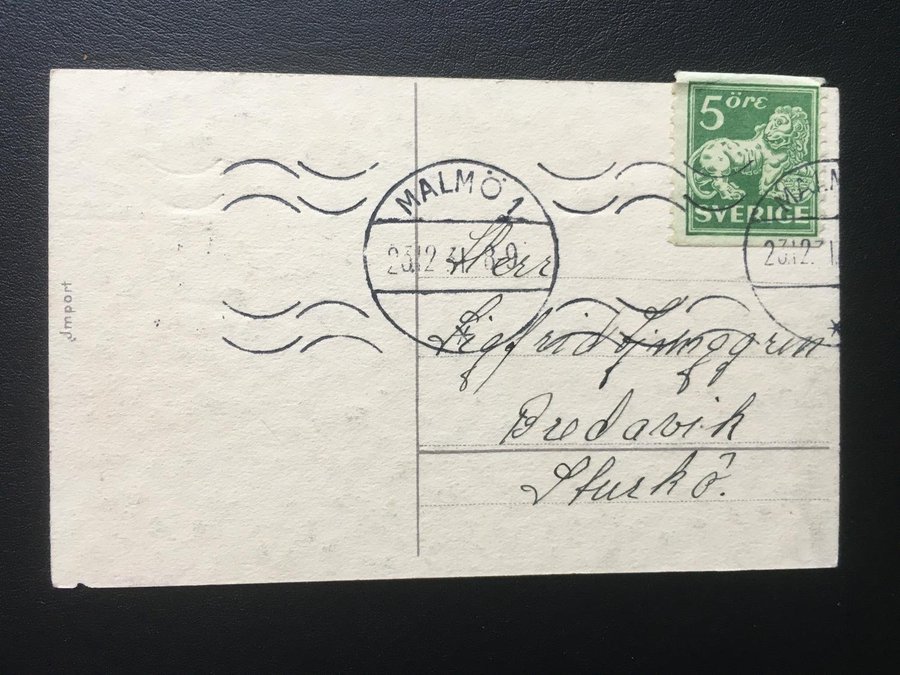 5 öre
SVERIGE
MALMÖ 1
23.12.31. 8-9
MALM
23.12.31.
Herr
Sigfrid Ljunggren
Bredavik
Sturkö.
Import